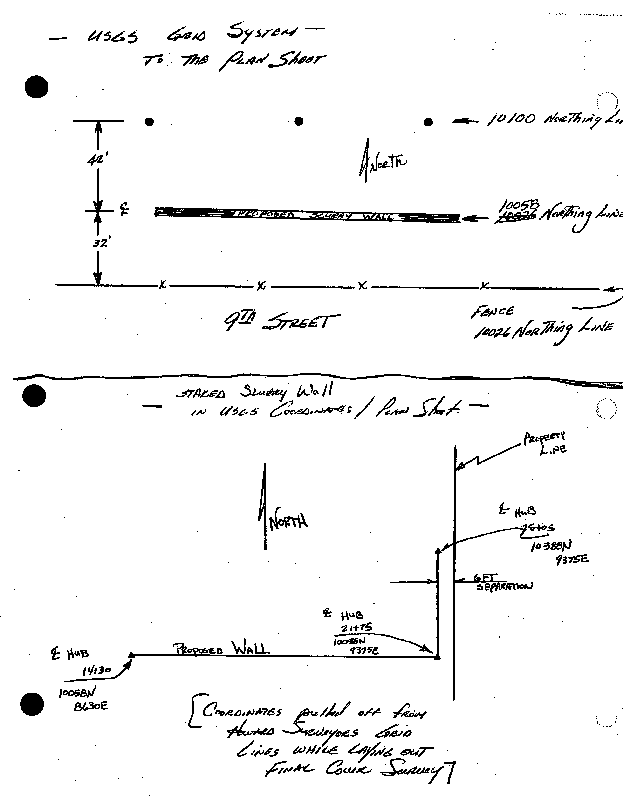 — USGS GRID SYSTEM —
TO THE PLAN SHEET
10100 NORTHING LIN
42'
NORTH
℄
PROPOSED SLURRY WALL
10058
10026 NORTHING LINE
32'
9TH STREET
FENCE
10026 NORTHING LINE
STAKED SLURRY WALL
— IN USGS COORDINATES / PLAN SHEET —
PROPERTY
LINE
NORTH
℄ HUB
10388N
9375E
6 FT
SEPARATION
℄ HUB
21+75
10058N
9375E
PROPOSED WALL
℄ HUB
14+30
10058N
8630E
[COORDINATES PULLED OFF FROM
HOWARD SURVEYORS GRID
LINES WHILE LAYING OUT
FINAL COVER SURVEY]